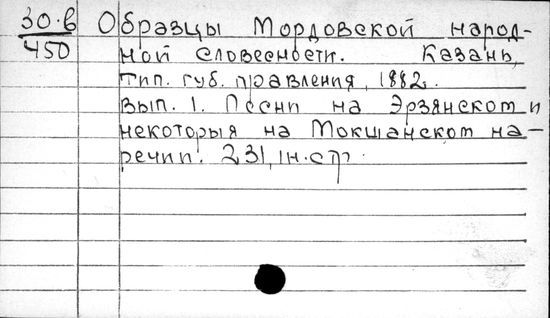 30·в Образцы Мордовской народ-
450 ной словесности. Казань,
тип. губ. правления, 1882.
вып. 1. Песни на Эрзянском и
некоторыя на Мокшанском на-
речии. 231, Iн. стр.